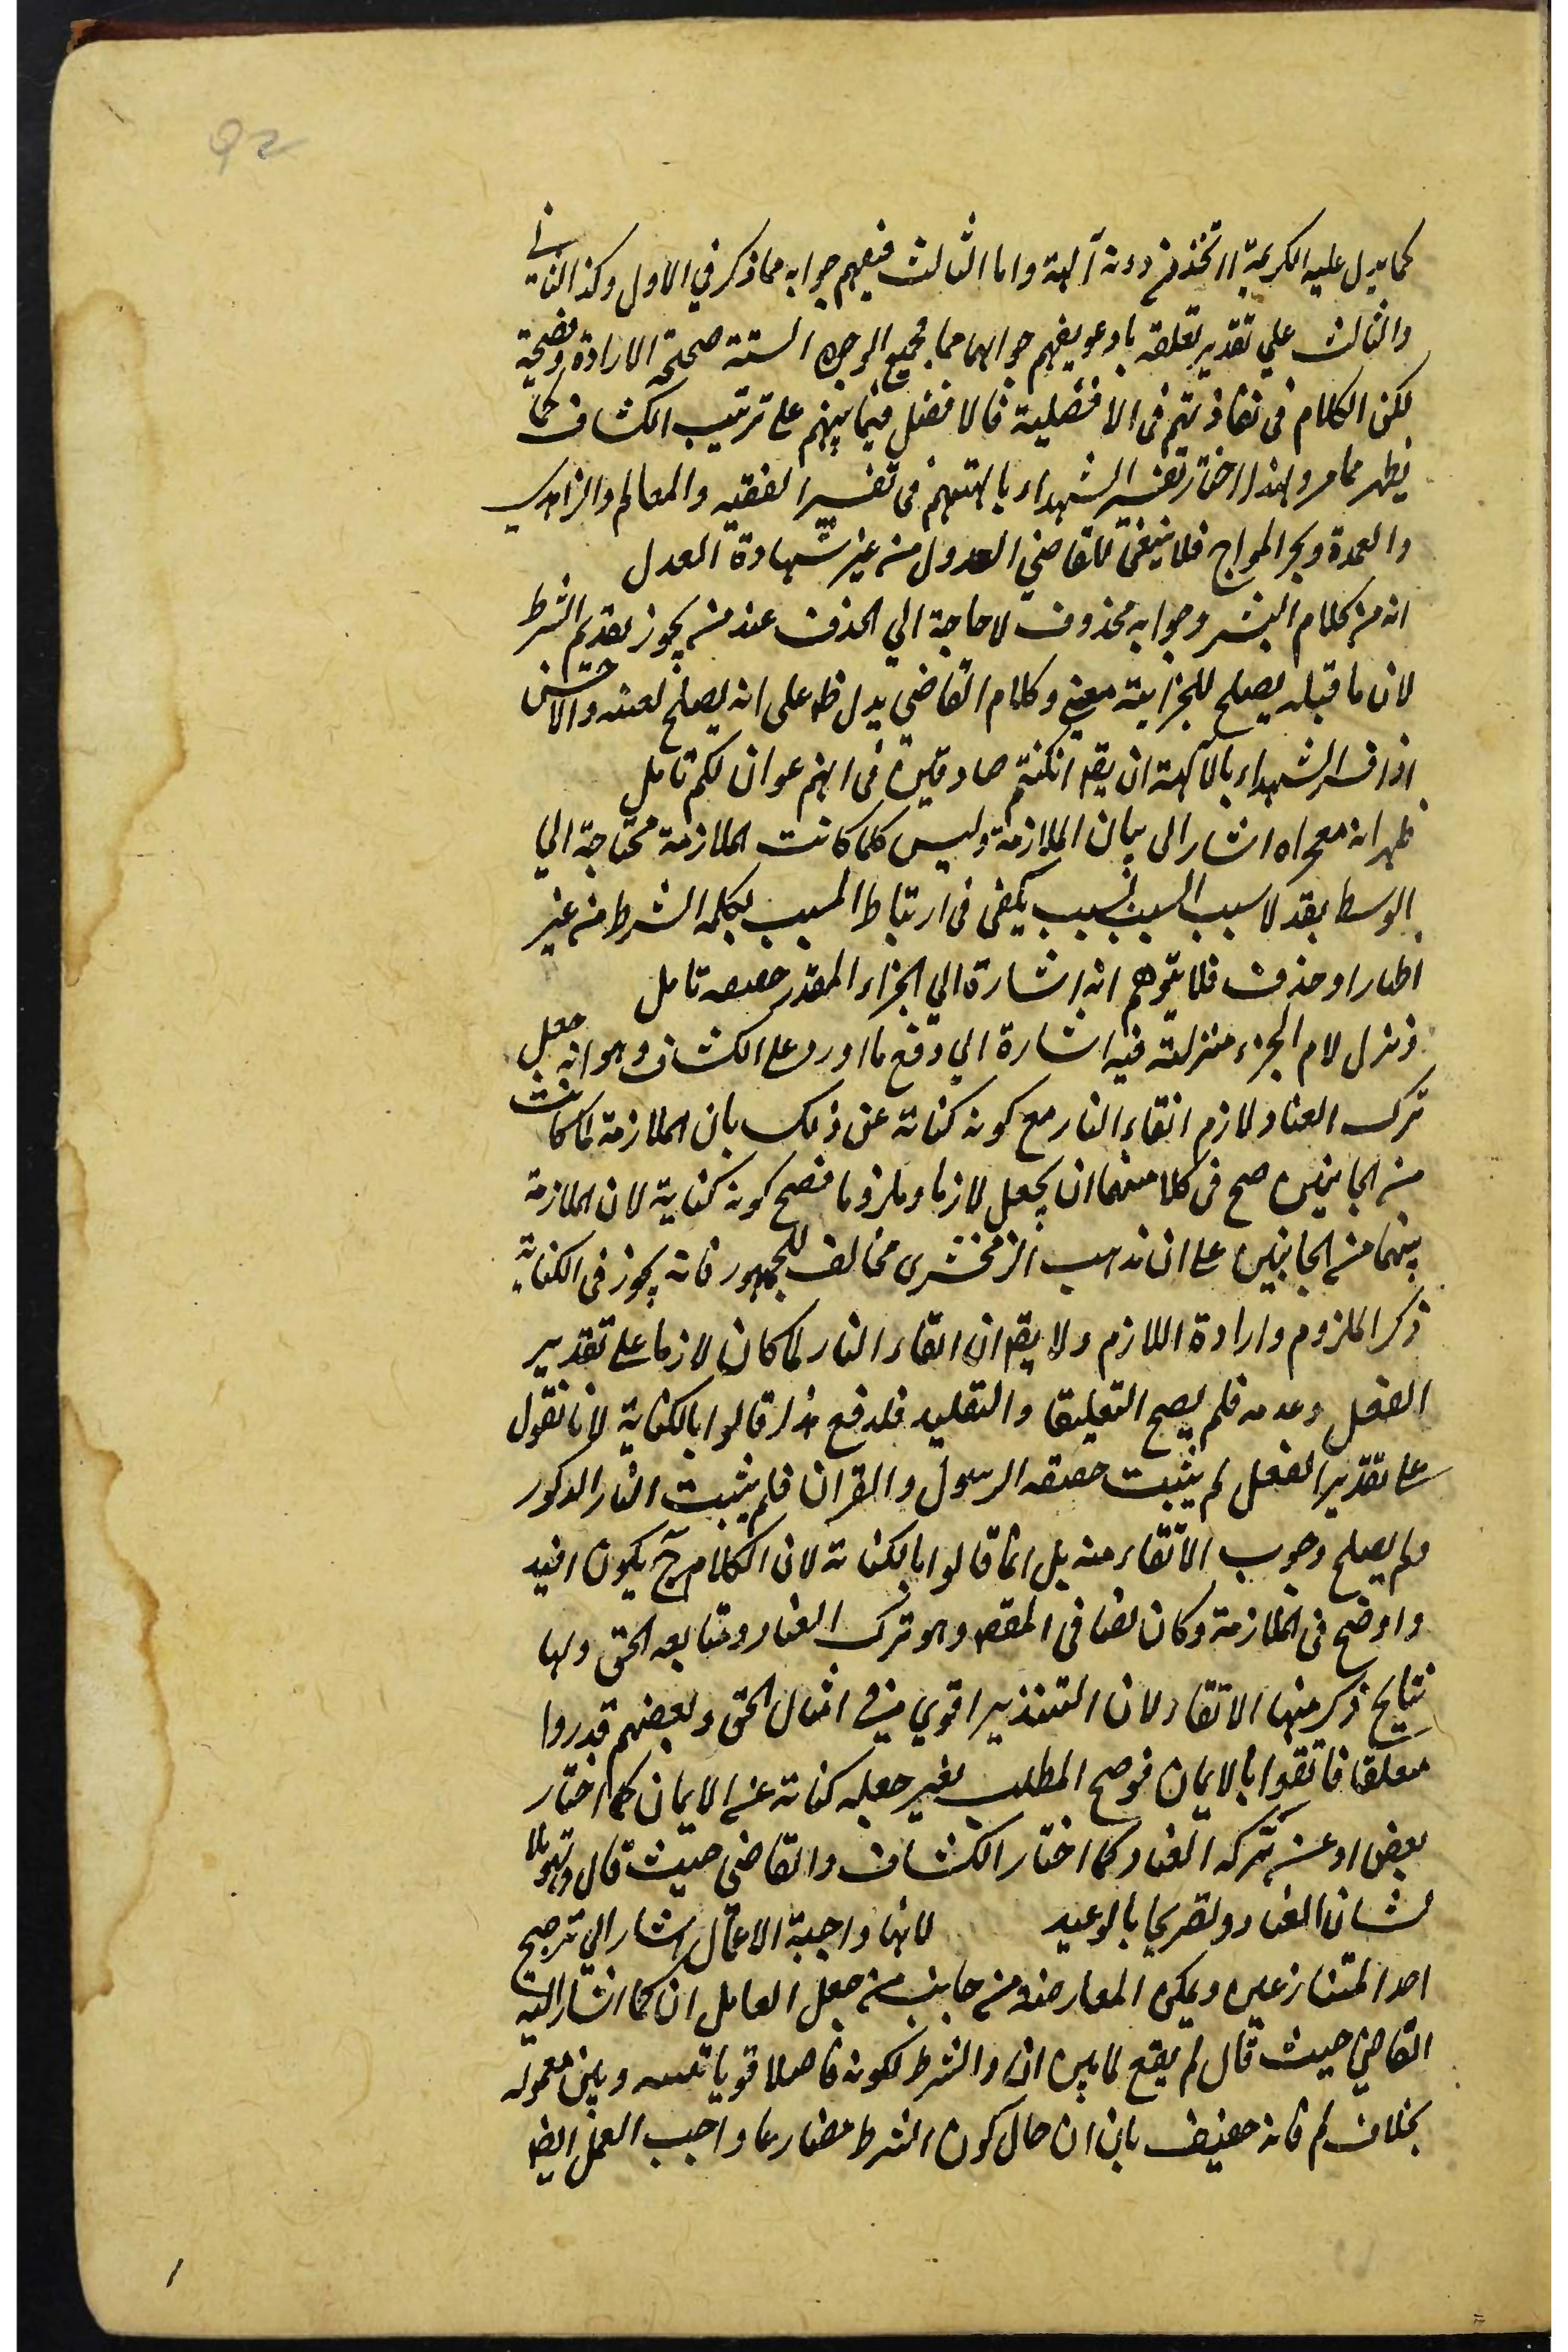 92
كما يدل عليه الكريمة ااتخذ من دونه آلهة واما الثالث فيفهم جوابه مما ذكر في الاول وكذا الثاني
والثالث علي تقدير تعلقه بادعو يفهم جوابهما مما فجميع الوجوه الستة صحيحة الارادة وفصيحة
لكن الكلام فى تفاوتهم فى الافضلية فالافضل فيما بينهم على ترتيب الكشاف كما
يظهر مما مر ولهذا اختار تفسير الشهداء بالهتهم فى تفسير الفقيه والمعالم والزاهدي
والعمدة وبحر المواج فلا ينبغى للقاضي العدول من غير شهادة العدل
انه من كلام البشر وجوابه محذوف لا حاجة الي الحذف عند من يجوز تقديم الشرط
لان ما قبله يصلح للجزائية معنى وكلام القاضي يدل ظ على انه يصلح لعينه والاحسن
اذا فسر الشهداء بالآلهة ان يقد ان كنتم صادقين فى انهم اعوان لكم تامل
ظهر انه معجز اه اشار الى بيان الملازمة وليس كلما كانت الملازمة محتاجة الي
الوسط يقدر لا سبب السبب لسبب يكفى فى ارتباط المسبب بكلمة الشرط من غير
اظهار او حذف فلا يتوهم انه اشارة الي الجزاء المقدر حقيقة تامل
ونزل لازم الجزاء منزلته فيه اشارة الي دفع ما اورد على الكشاف وهو انه جعل
ترك العناد لازم اتقاء النار مع كونه كناية عن ذلك بان الملازمة لما كانت
من الجانبين صح فى كلا منهما ان يجعل لازما وملزوما فصح كونه كناية لان الملازمة
بينهما من الجانبين على ان مذهب الزمخشرى مخالف للجمهور فانه يجوز فى الكناية
ذكر الملزوم وارادة اللازم ولا يقد ان اتقاء النار لما كان لازما على تقدير
الفعل وعدمه فلم يصح التعليق والتقليد فلدفع هذا قالوا بالكناية لانا نقول
على تقدير الفعل لم يثبت حقيقة الرسول والقران فلم يثبت النار المذكور
ولم يصلح وجوب الاتقاء منه بل انما قالوا بالكناية لان الكلام ح يكون افيد
واوضح فى الملازمة وكان نصا فى المقصد وهو ترك العناد ومتابعة الحق ولها
نتايج ذكر منها الاتقاء لان التنذير اقوي فى امثال الحق وبعضهم قدروا
متعلقا فاتقوا بالايمان فوضح المطلب بغير جعله كناية عن الايمان كما اختار
بعض او عن تركه العناد كما اختار الكشاف والقاضي حيث قال وتهويلا
لشان العناد وتصريحا بالوعيد لانها واجبة الاعمال اشار الي ترجيح
احد المتنازعين ويمكن المعارضة من جانب من جعل العامل ان كما اشار اليه
القاضي حيث قال لم يقع لما بين ان والشرط لكونه فاصلا قويا بينه وبين معموله
بخلاف لم فانه ضعيف بان ان حال كون الشرط مضارعا واجب العمل ايضا